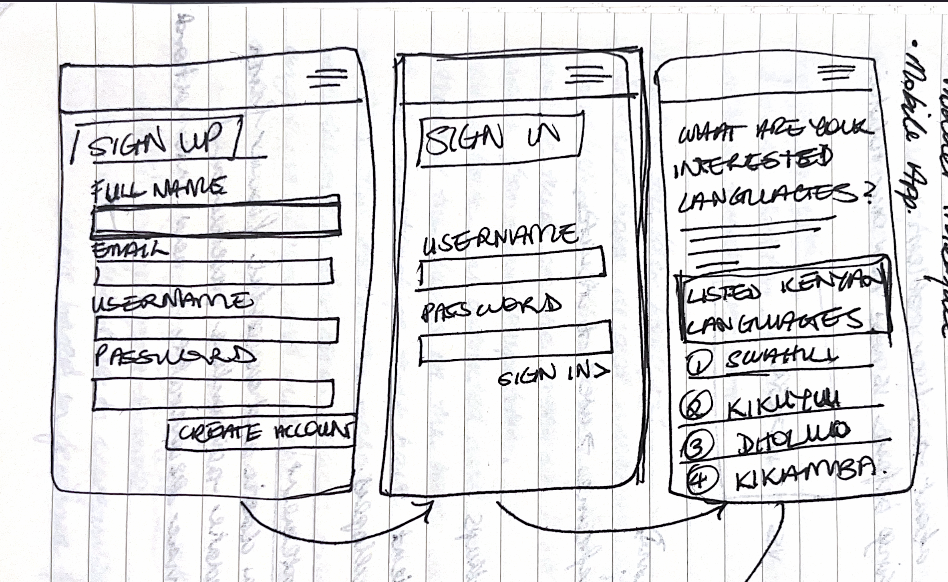 SIGN UP
FULL NAME
EMAIL
USERNAME
PASSWORD
CREATE ACCOUNT
SIGN IN
USERNAME
PASSWORD
SIGN IN>
WHAT ARE YOUR
INTERESTED
LANGUAGES?
LISTED KENYAN
LANGUAGES
① SWAHILI
② KIKUYU
③ DHOLUO
④ KIKAMBA.
• Mobile App.